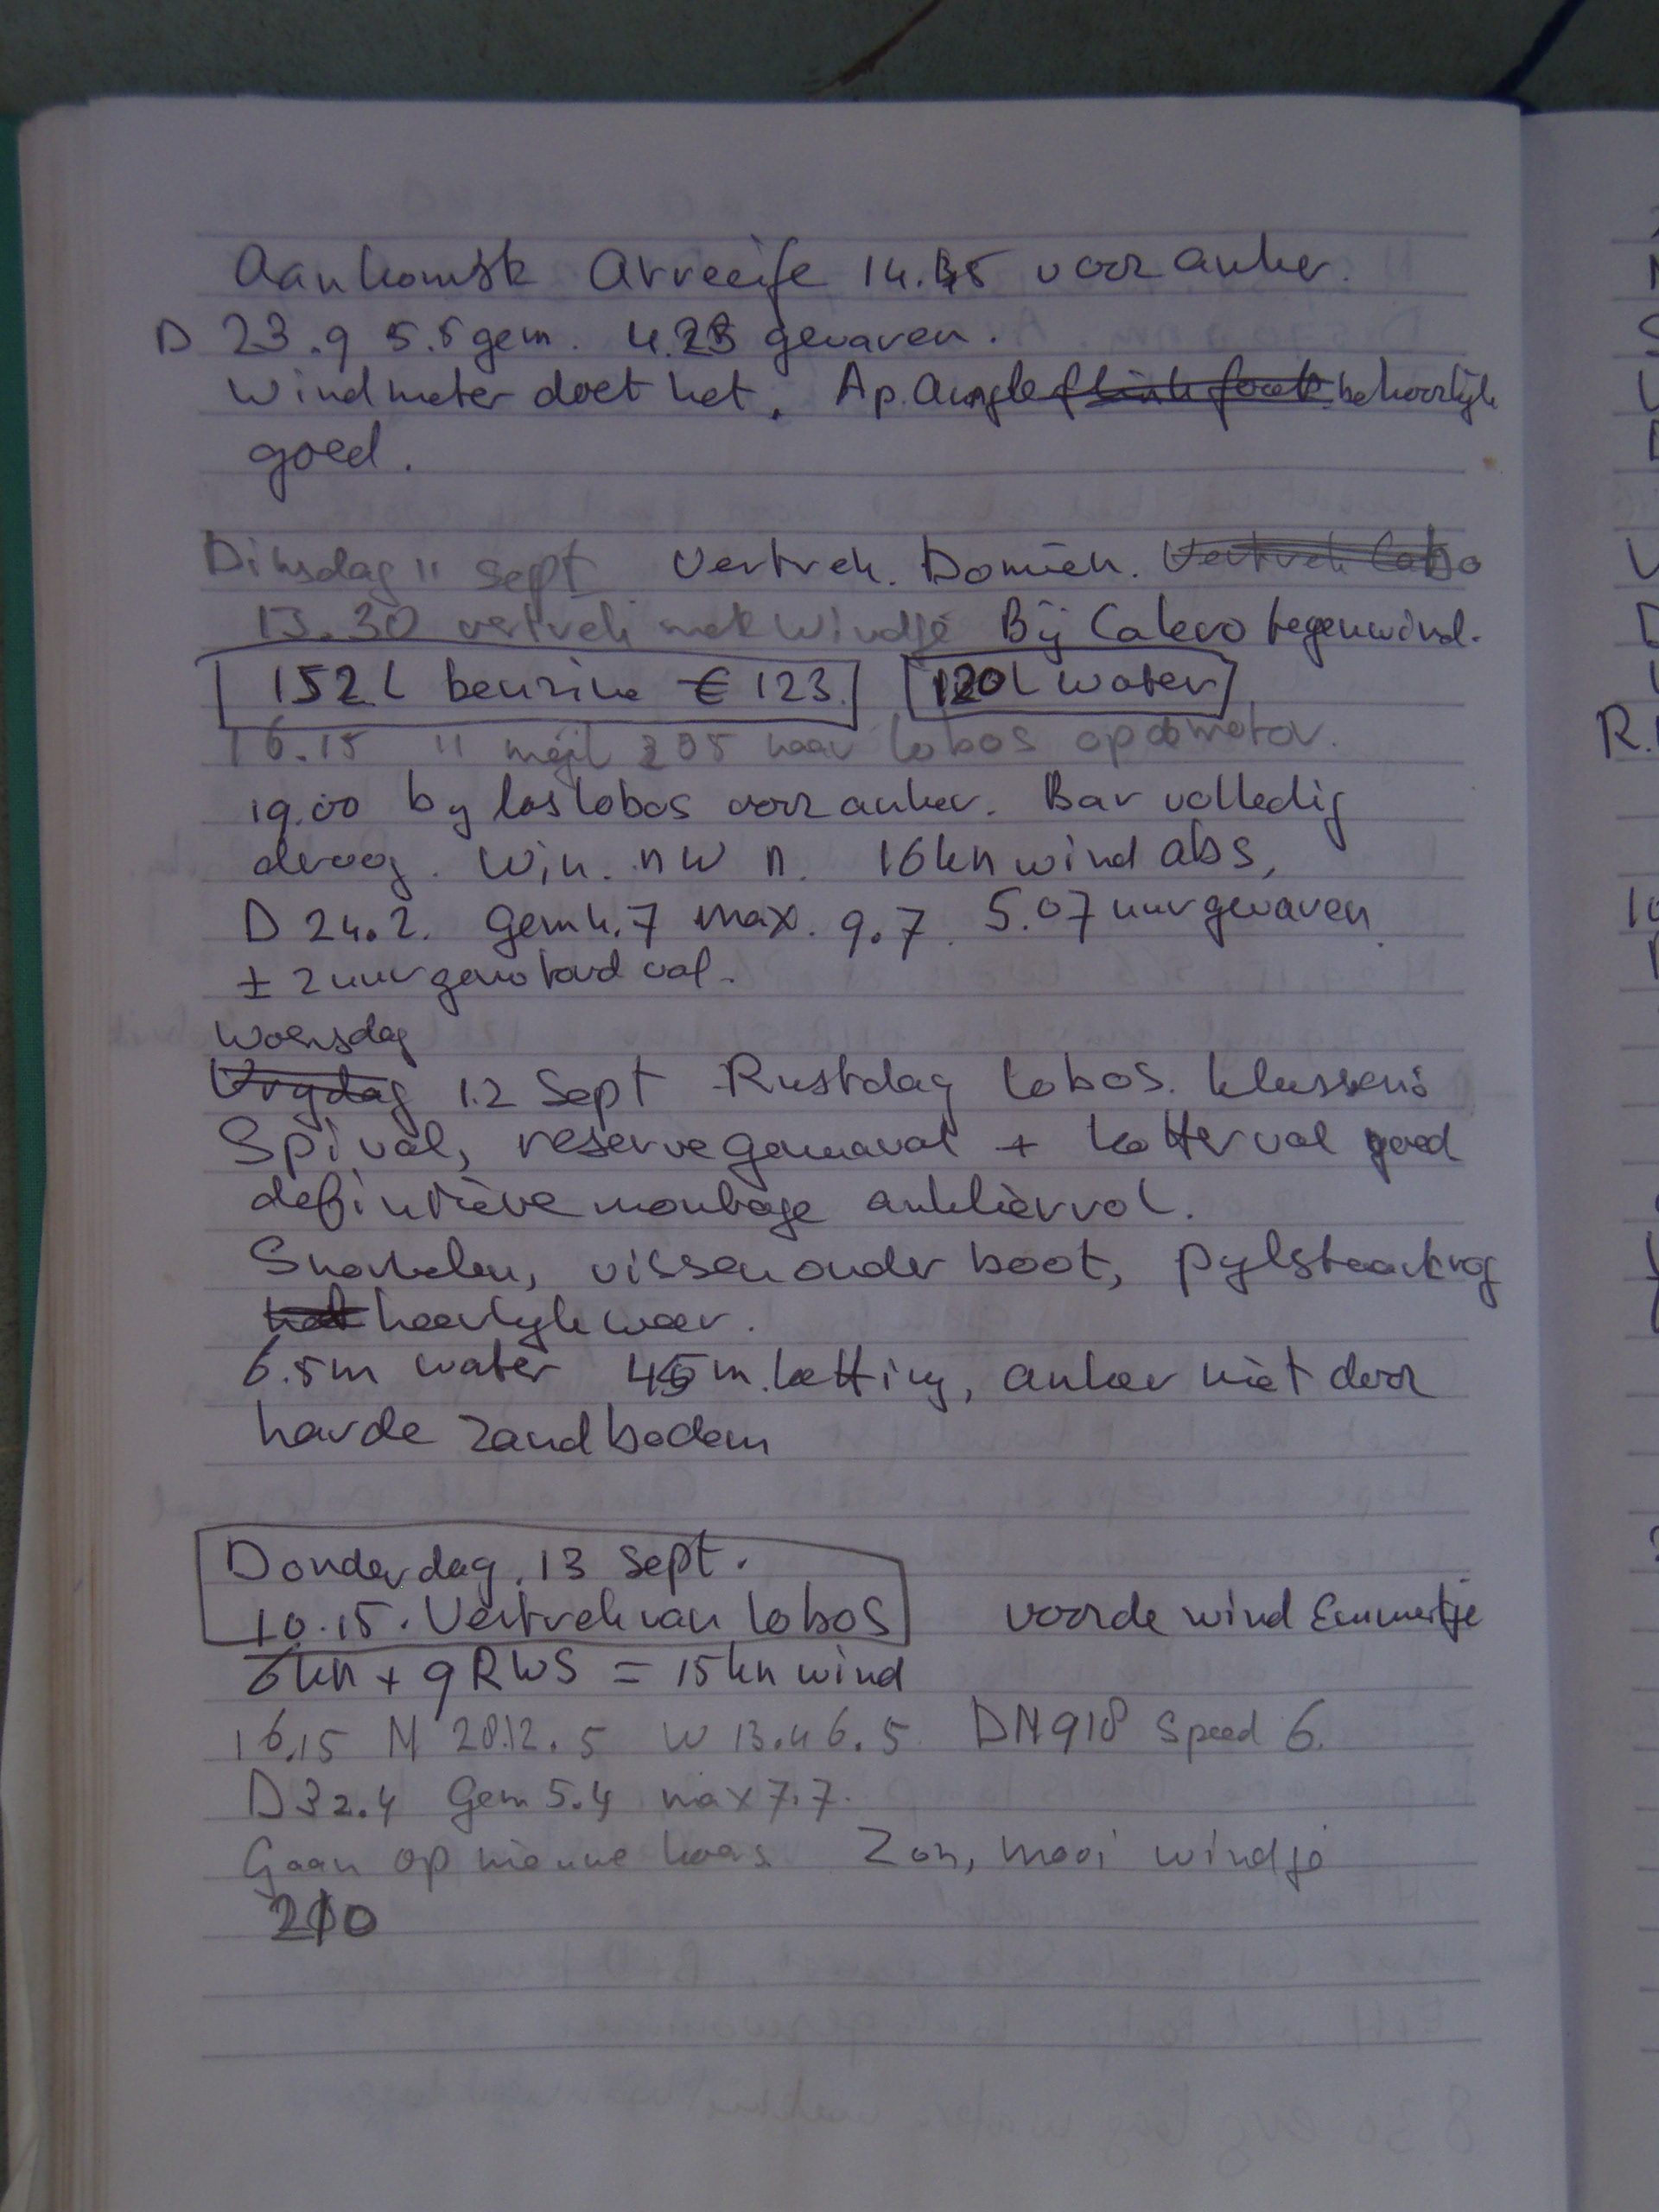 Aankomst Arrecife 14.45 voor anker.
D 23.9 5.5 gem. 4.23 gevaren.
Windmeter doet het. Ap. Angle behoorlijk
goed.
Dinsdag 11 Sept Vertrek. Domien.
13.30 vertrek met windje Bij Calero tegenwind.
152 L benzine € 123. 120 L water
16.15 11 mijl 205 naar lobos op de motor.
19.00 by los lobos voor anker. Bar volledig
droog. Win. nw n. 16 kn wind abs,
D 24.2. Gem 4.7 max. 9.7. 5.07 uur gevaren.
± 2 uur gemotord val.
Woensdag
Vrydag 12 Sept Rustdag lobos. klussen:
Spi val, reserve genuaval + kotterval goed
definitieve montage ankerrol.
Snorkelen, vissen onder boot, pylstaartrog
heerlyk weer.
6.5m water 45 m. ketting, anker niet door
harde zandbodem
Donderdag. 13 sept.
10.15. Vertrek van lobos voor de wind Emmertje
6 kn + 9 RWS = 15 kn wind
16.15 N 28.12.5 W 13.46.5 DN 918 Speed 6.
D 32.4 Gem 5.4 max 7.7.
Gaan op nieuwe koers Zon, mooi windje
210